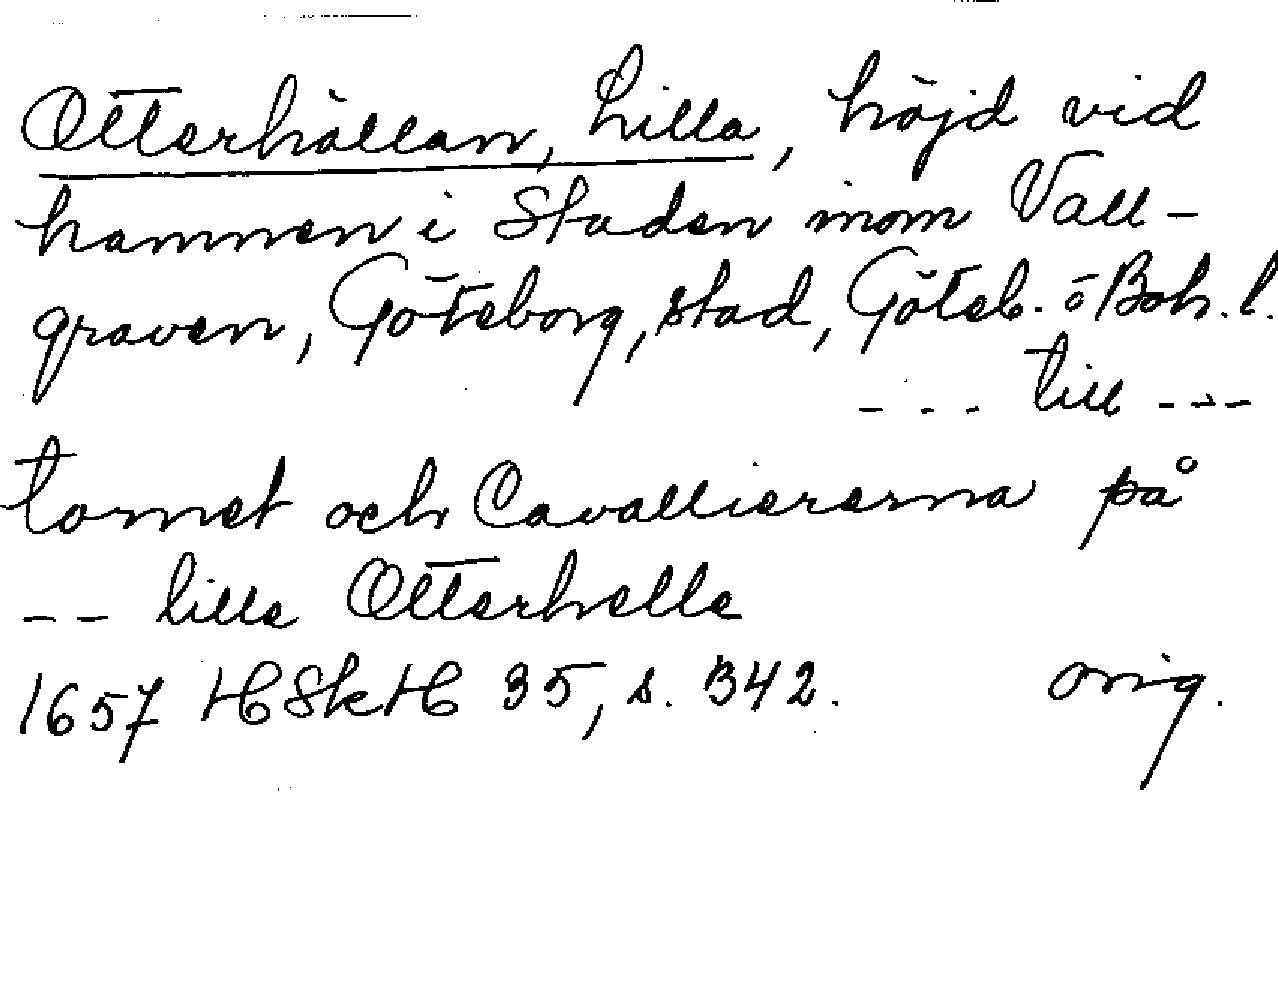 Otterhällan, Lilla, höjd vid
hamnen i Staden inom Vall-
graven, Göteborg, stad, Göteb. o Boh. l.
- - - till - - -
tornet och Cavalliererna på
- - lille Otterhelle
1657 HSkH 35, s. 342. orig.